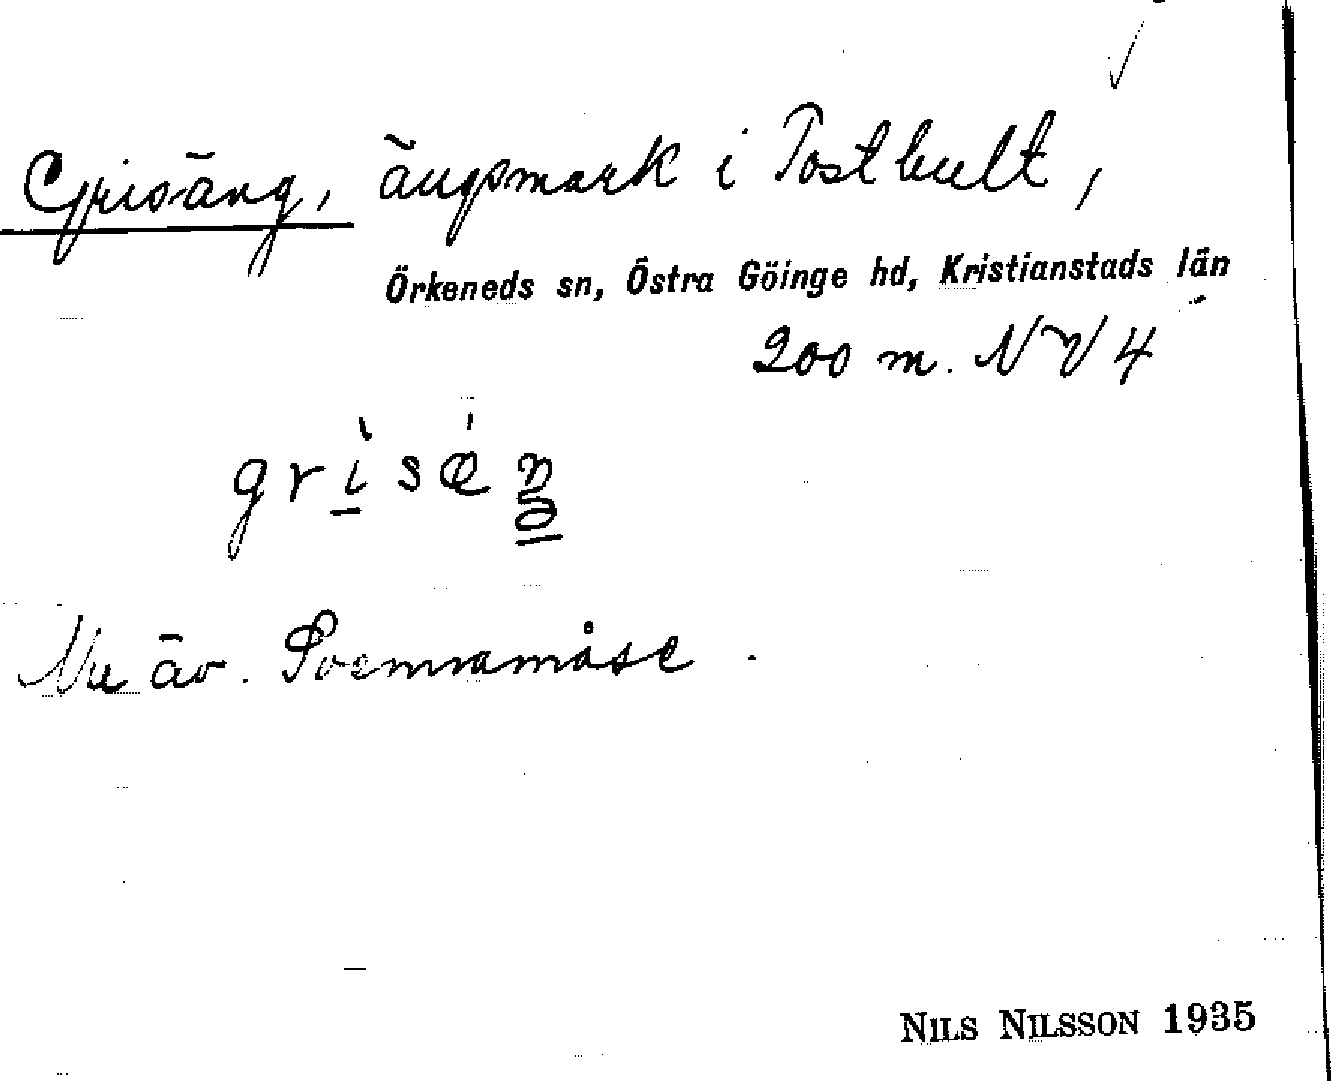 Grisäng, ängsmark i Tostbult,
Örkeneds sn, Östra Göinge hd, Kristianstads län
200 m. NV 4
Nu äv.
NILS NILSSON 1935